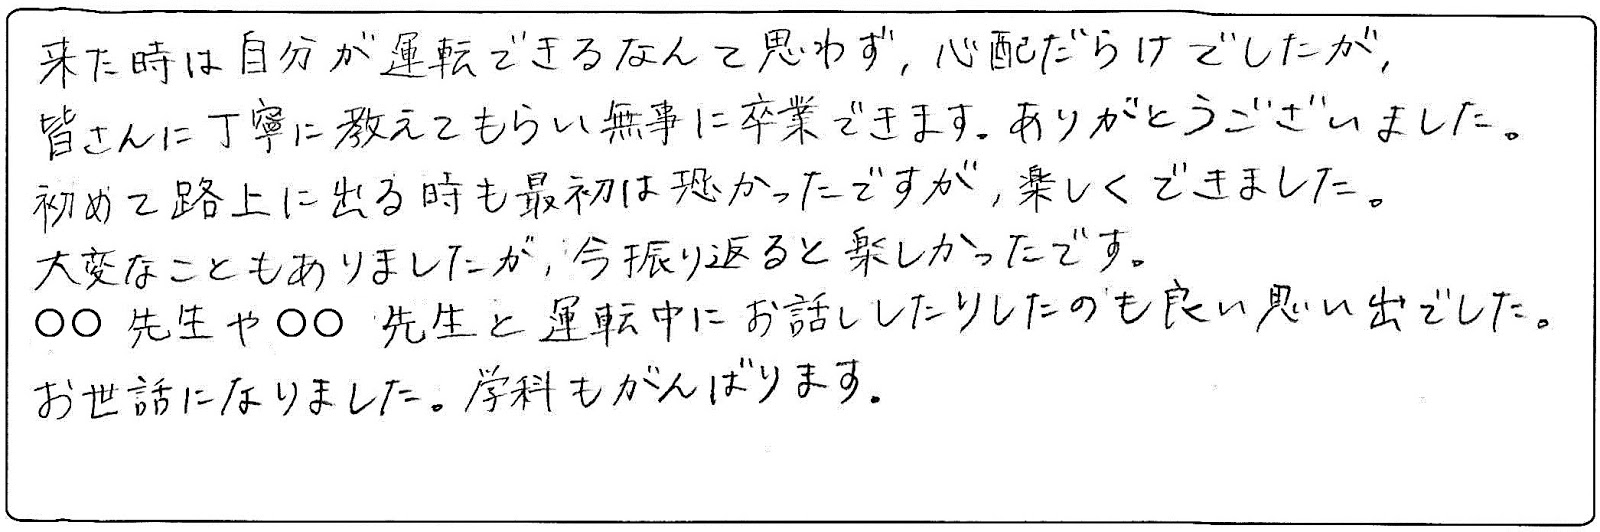 来た時は自分が運転できるなんて思わず,心配だらけでしたが,
皆さんに丁寧に教えてもらい無事に卒業できます。ありがとうございました。
初めて路上に出る時も最初は恐かったですが,楽しくできました。
大変なこともありましたが,今振り返ると楽しかったです。
○○ 先生や○○ 先生と運転中にお話ししたりしたのも良い思い出でした。
お世話になりました。学科もがんばります。